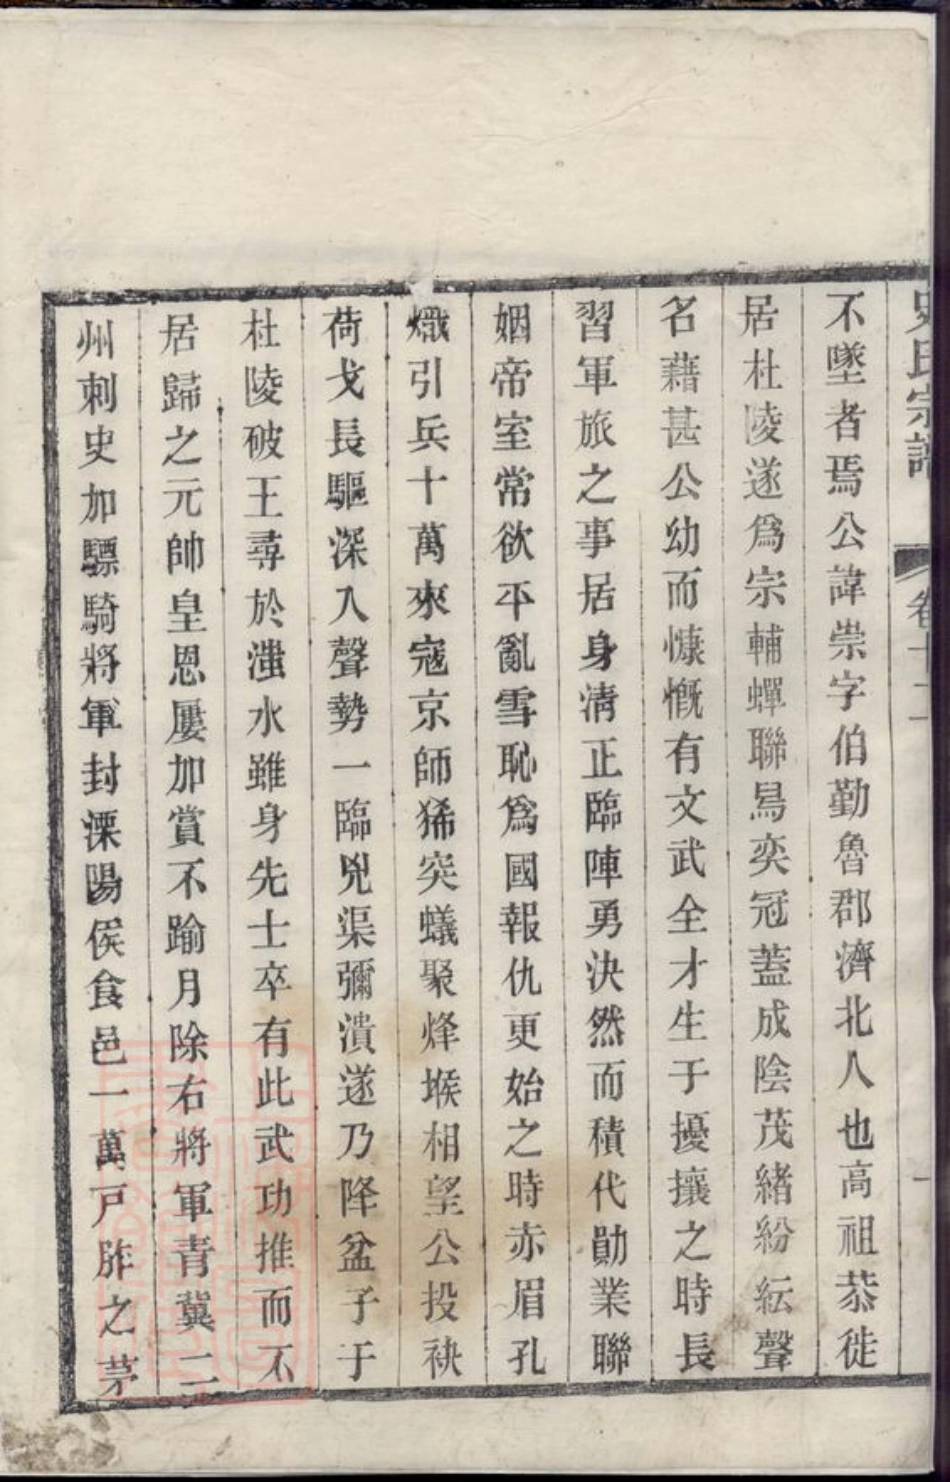 史氏宗譜 卷十二 一
不墜者焉公諱崇字伯勤魯郡濟北人也高祖恭徙
居杜陵遂爲宗輔蟬聯舃奕冠蓋成陰茂緒紛紜聲
名藉甚公幼而慷慨有文武全才生于擾攘之時長
習軍旅之事居身淸正臨陣勇決然而積代勛業聯
姻帝室常欲平亂雪恥爲國報仇更始之時赤眉孔
熾引兵十萬來寇京師狶突蟻聚烽堠相望公投袂
荷戈長驅深入聲勢一臨兇渠彌潰遂乃降盆子于
杜陵破王尋於滍水雖身先士卒有此武功推而不
居歸之元帥皇恩屢加賞不踰月除右將軍青冀二
州刺史加驃騎將軍封溧陽侯食邑一萬戸胙之茅